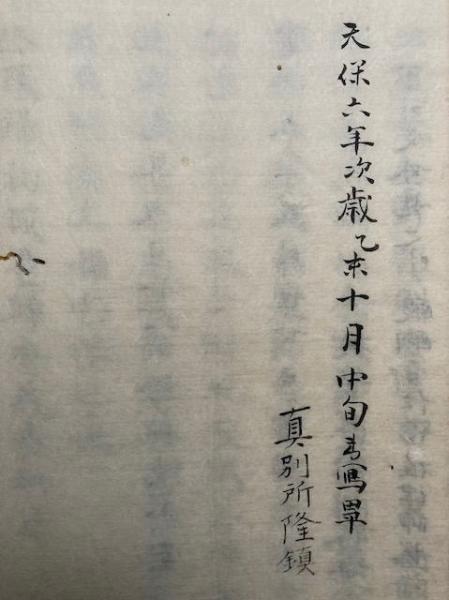 天保六年次歳乙未十月中旬書寫畢
真別所隆鎮